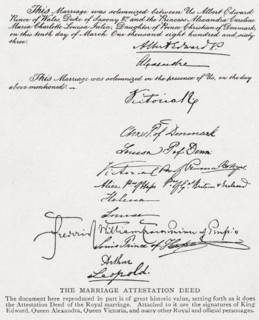 This Marriage was solemnized between Us Albert Edward
Prince of Wales, Duke of Saxony &c. and the Princess Alexandra Caroline
Maria Charlotte Louisa Julia, Daughter of Prince Christian of Denmark,
on this tenth day of March One thousand eight hundred and sixty
three.
Albert Edward P.
Alexandra
This Marriage was solemnized in the presence of Us, on the day
above mentioned.
Victoria R
Chre P of Denmark
Louisa P of Denm
Victoria
Alice
Helena
Louise
Frederic William
Louis Prince of
Arthur
Leopold.
THE MARRIAGE ATTESTATION DEED
The document here reproduced in part is of great historic value, setting forth as it does
the Attestation Deed of the Royal marriage. Attached to it are the signatures of King
Edward, Queen Alexandra, Queen Victoria, and many other Royal and official personages.